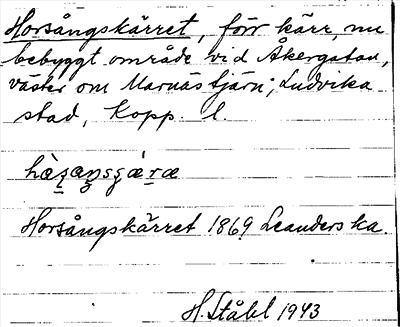 Horsångskärret, förr kärr, nu
bebyggt område vid Åkergatan,
väster om Marnästjärn; Ludvika
stad, Kopp. l.
Horsångskärret 1869 Leanders ka.
H. Ståhl 1943